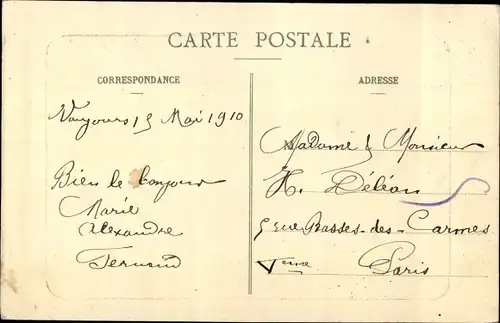 CARTE POSTALE
CORRESPONDANCE
ADRESSE
Vaujours 15 Mai 1910
Bien le bonjour
Marie
Alexandre
Fernand
Madame & Monsieur
H. Déléan
5 rue Basses-des-Carmes
Veme
Paris